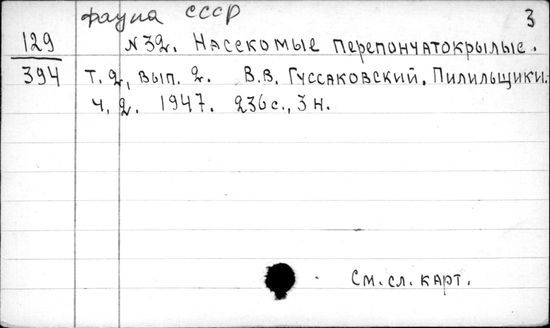 фауна СССР 3
129 N 32. Насекомые перепончатокрылые.
394 Т. 2, вып. 2. В.В. Гуссаковский. Пилильщики.
Ч. 2. 1947. 236 с., 3 н.
См. сл. карт.